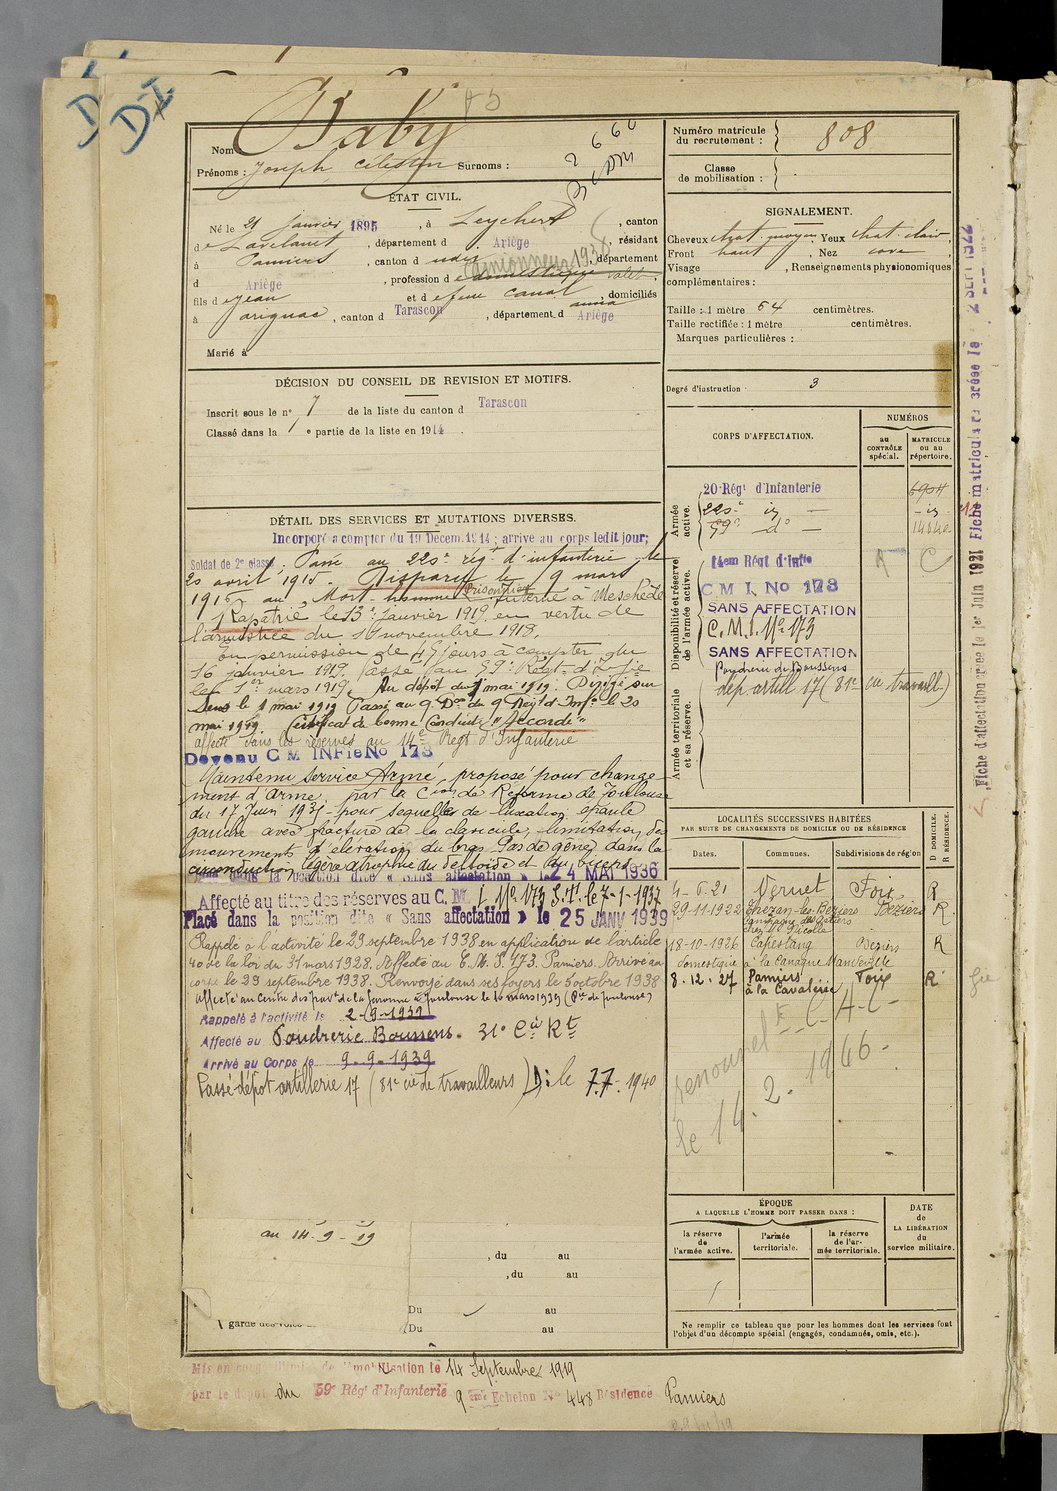 D-I
Baby
Nom
Prénoms : Joseph Célestin Surnoms :
ÉTAT CIVIL.
Né le 21 Janvier 1895, à Leychert, canton
de Lavelanet, département d Ariège, résidant
à Pamiers, canton d udis, département
d Ariège, profession de domestique valet
Camionneur 1938
fils de Jean et de feue Canal Anna, domiciliés
à Arignac, canton d Tarascon, département d Ariège
Marié à
DÉCISION DU CONSEIL DE REVISION ET MOTIFS.
Inscrit sous le n° 7 de la liste du canton d Tarascon
Classé dans la 1e partie de la liste en 1914.
DÉTAIL DES SERVICES ET MUTATIONS DIVERSES.
Incorporé a compter du 19 Décem. 1914 ; arrivé au corps ledit jour;
Soldat de 2e classe ; Passé au 220e rég't d'infanterie le
20 avril 1915. Disparu le 9 mars
1916 au Mort-homme Prisonnier Interné à Meschède
Rapatrié le 13 Janvier 1919 en vertu de
l'armistice du 11 novembre 1918.
En permission de 45 jours à compter du
16 janvier 1919. Passé au 59e Rég't d'Infie
le 1er mars 1919. Au dépôt du 1 mai 1919. Dirigé sur
Sens le 1 mai 1919 Passé au 9 Don du 9 Rég't d'Infie le 20
mai 1919. Certificat de bonne Conduite "Accordé"
affecté dans les réserves au 14e Régt d'Infanterie
Devenu C M INFie No 173
Maintenu Service Armé, proposé pour change-
ment d'arme, par la Cion de Réforme de Toulouse
du 17 Juin 193 - pour sequelles de luxation épaule
gauche avec fracture de la clavicule, limitation de
mouvements d'élévation du bras. Pas de gêne dans la
circonduction, légère atrophie du deltoïde et du biceps
dans la position dite « Sans affectation » le 24 MAI 1936
Affecté au titre des réserves au C. M. I. No 173 S.T. le 7-1-1937
Placé dans la position dite « Sans affectation » le 25 JANV 1939
Rappelé à l'activité le 29 septembre 1938 en application de l'article
40 de la loi du 31 mars 1928. Affecté au C. M. I. 173. Pamiers. Arrivé au
corps le 29 septembre 1938. Renvoyé dans ses foyers le 5 octobre 1938
Affecté au Centre des trav. de la Garonne à Toulouse le 16 mars 1939 (Pie de Toulouse)
Rappelé à l'activité le 2-9-1939
Affecté au Poudrerie Boussens. 31e Cie Rt
Arrivé au Corps le 9-9-1939
Passé dépôt artillerie 17 (81e cie de travailleurs) D. le 7.7. 1940
au 14-9-19
, du au
, du au
Du au
Du au
Mis en congé illimité de démobilisation le 14 Septembre 1919
par le dépôt du 59e Régt d'Infanterie 9 ème Echelon No 448 Résidence Pamiers
Numéro matricule du recrutement : 808
Classe de mobilisation :
SIGNALEMENT.
Cheveux chat. moyen Yeux chat. clair,
Front haut, Nez cave,
Visage , Renseignements physionomiques
complémentaires :
Taille : 1 mètre 64 centimètres.
Taille rectifiée : 1 mètre centimètres.
Marques particulières :
Degré d'instruction 3
CORPS D'AFFECTATION.
NUMÉROS
au CONTRÔLE spécial.
MATRICULE ou au répertoire.
Armée active.
20 Régt d'Infanterie 6904
220e id - id
59e do 14540
Disponibilité et réserve de l'armée active.
14em Régt d'Infie
C M I, No 173
SANS AFFECTATION
C. M. I. No 173
SANS AFFECTATION
Poudrerie de Boussens
dép artill 17 (81e cie travaill.)
Armée territoriale et sa réserve.
LOCALITÉS SUCCESSIVES HABITÉES
PAR SUITE DE CHANGEMENTS DE DOMICILE OU DE RÉSIDENCE
Dates. Communes. Subdivisions de région D DOMICILE. R RÉSIDENCE.
4-6-21 Vernet Foix R
29-11-1922 Thézan-les-Béziers Béziers R
18-10-1926 Capestang Béziers R
domestique à la Canague
8.12.27 Pamiers Foix R
à la Cavalerie
renouvel
le 14.2.1946-
ÉPOQUE
A LAQUELLE L'HOMME DOIT PASSER DANS :
la réserve de l'armée active.
l'armée territoriale.
la réserve de l'armée territoriale.
DATE de LA LIBÉRATION du service militaire.
Ne remplir ce tableau que pour les hommes dont les services font
l'objet d'un décompte spécial (engagés, condamnés, omis, etc.).
Fiche d'affectation créée le 1er Juin 1921 Fiche matricule créée le 2 SEPT 1922